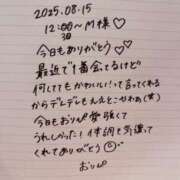 2025.08.15
12:00〜 M様♡
30
今日もありがとう♡♡
最近で1番会てるけど
何してもかわいい!って言ってくれる
からデレデレもええとこやわぁ(笑)
今日もおりぴ愛強くて
うれしかった!体調も気遣って
くれてありがとう☺
おりぴ